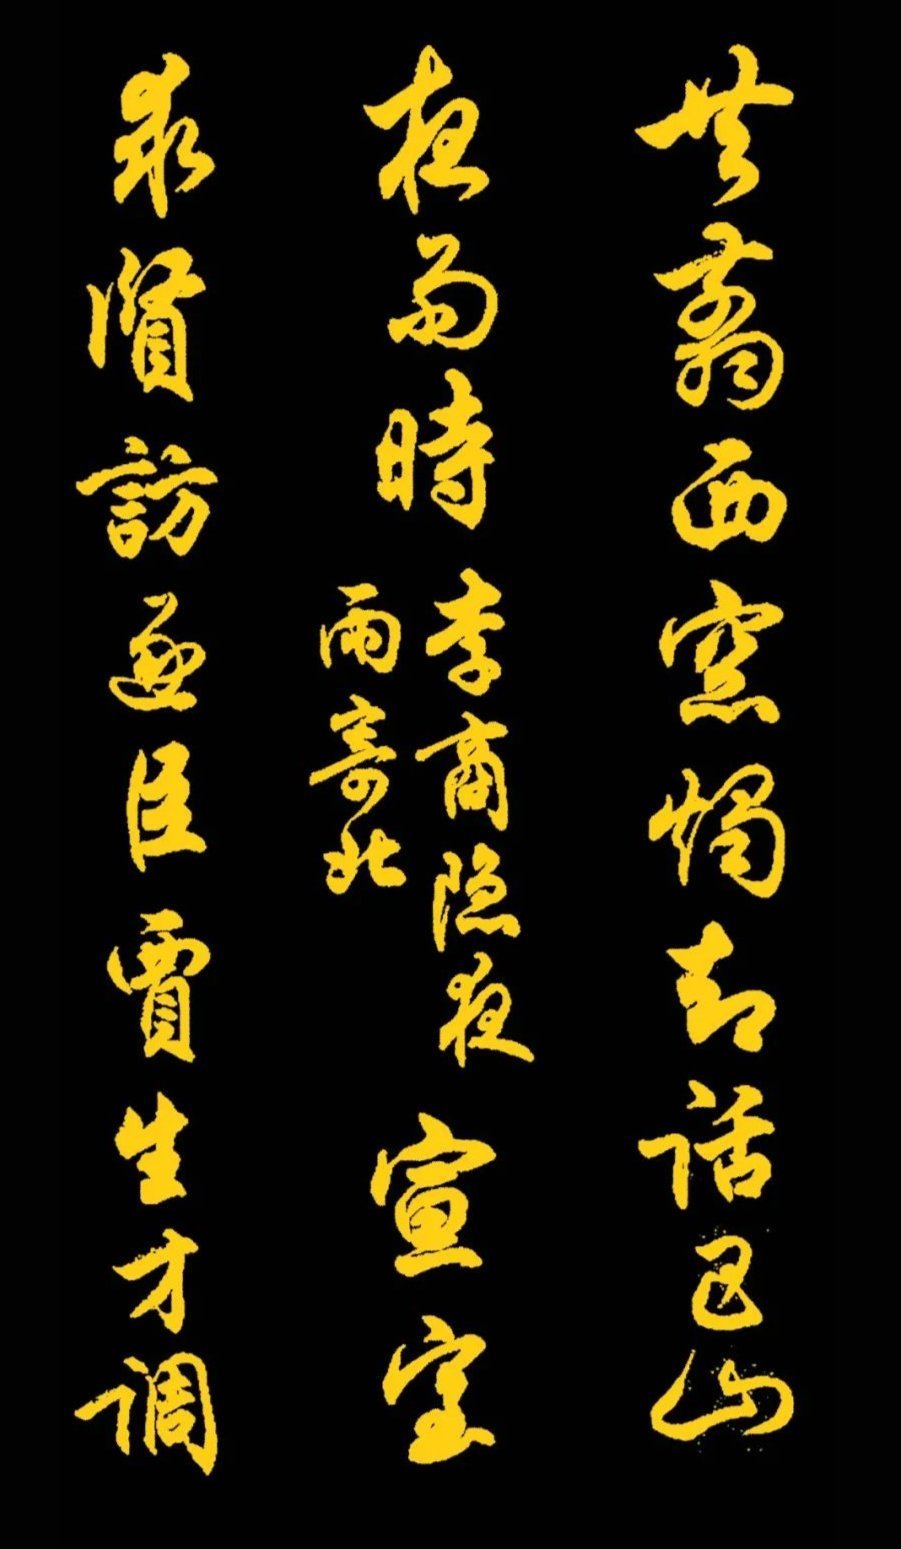 共翦西窓燭却話巴山
夜雨時
李商隐夜
雨寄北
宣室
求賢訪逐臣賈生才調